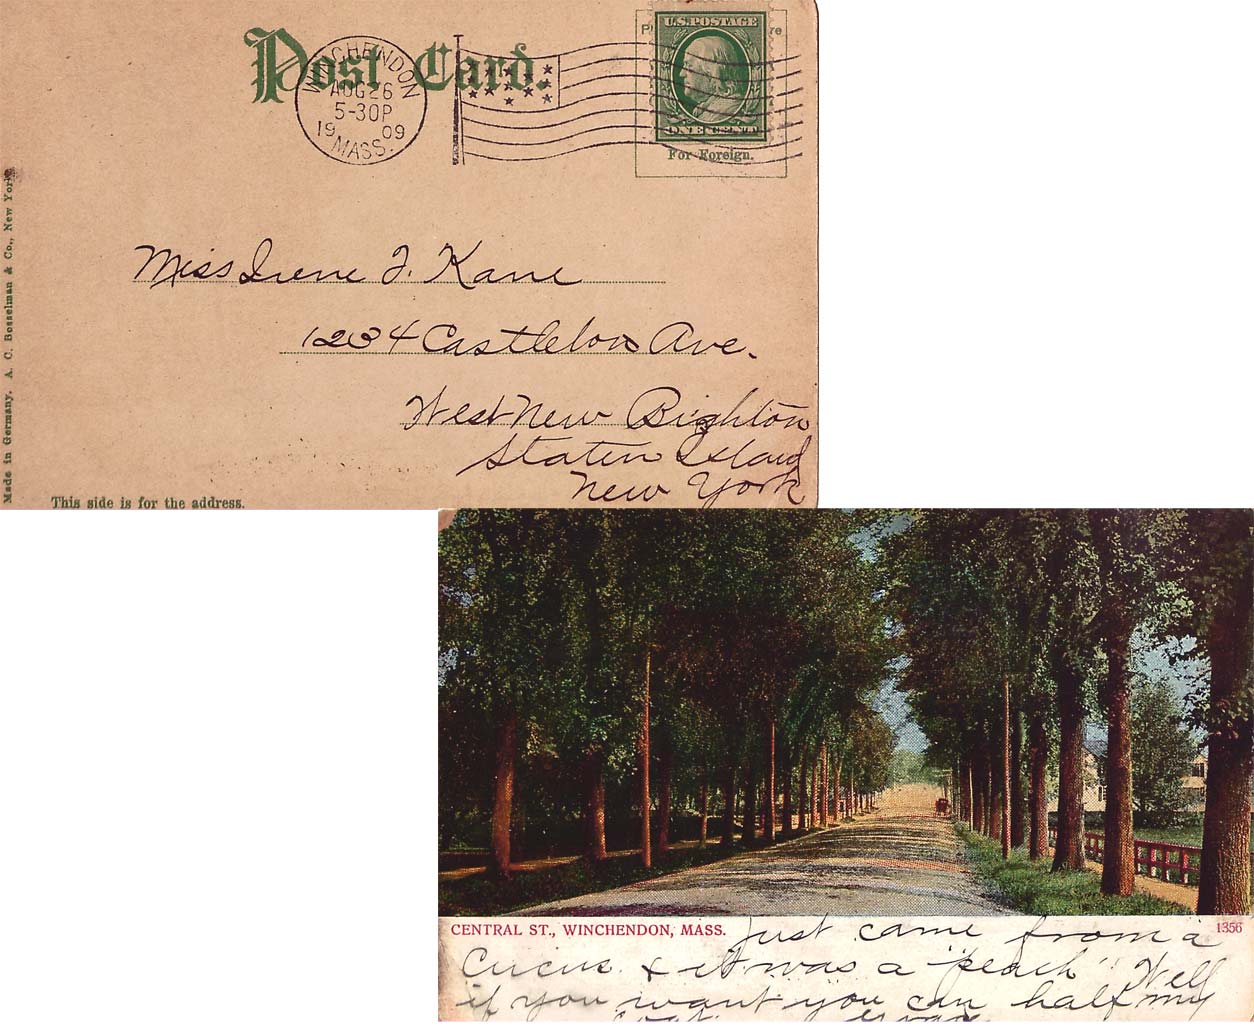 Post Card.
WINCHENDON
AUG 26
5-30P
19 09
MASS.
U.S. POSTAGE
ONE CENT
For Foreign.
Miss Irene F. Kane
1234 Castleton Ave.
West New Brighton
Staten Island
New York
Made in Germany. A. C. Bosselman & Co., New York
This side is for the address.
CENTRAL ST., WINCHENDON, MASS.
1356
Just came from a
Circus & it was a "peach" Well
if you want you can half my